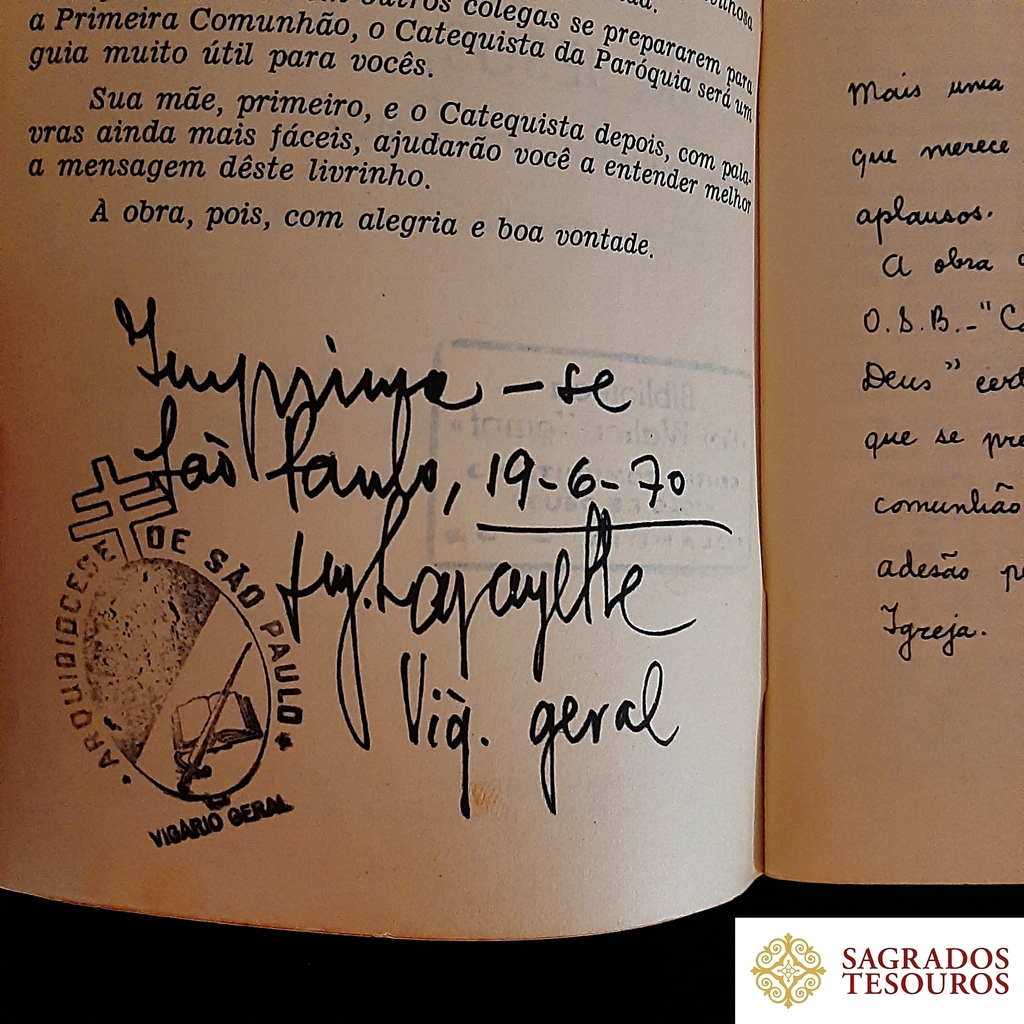 outros colegas se prepararem para
a Primeira Comunhão, o Catequista da Paróquia será um
guia muito útil para vocês.
Sua mãe, primeiro, e o Catequista depois, com pala-
vras ainda mais fáceis, ajudarão você a entender melhor
a mensagem dêste livrinho.
À obra, pois, com alegria e boa vontade.
Imprima-se
São Paulo, 19-6-70
Lafayette
Vig. geral
ARQUIDIOCESE DE SÃO PAULO
VIGÁRIO GERAL
Mais uma
que merece
aplausos.
A obra
O.S.B.-"
Deus"
que se
comunhão
adesão
Igreja.
SAGRADOS
TESOUROS